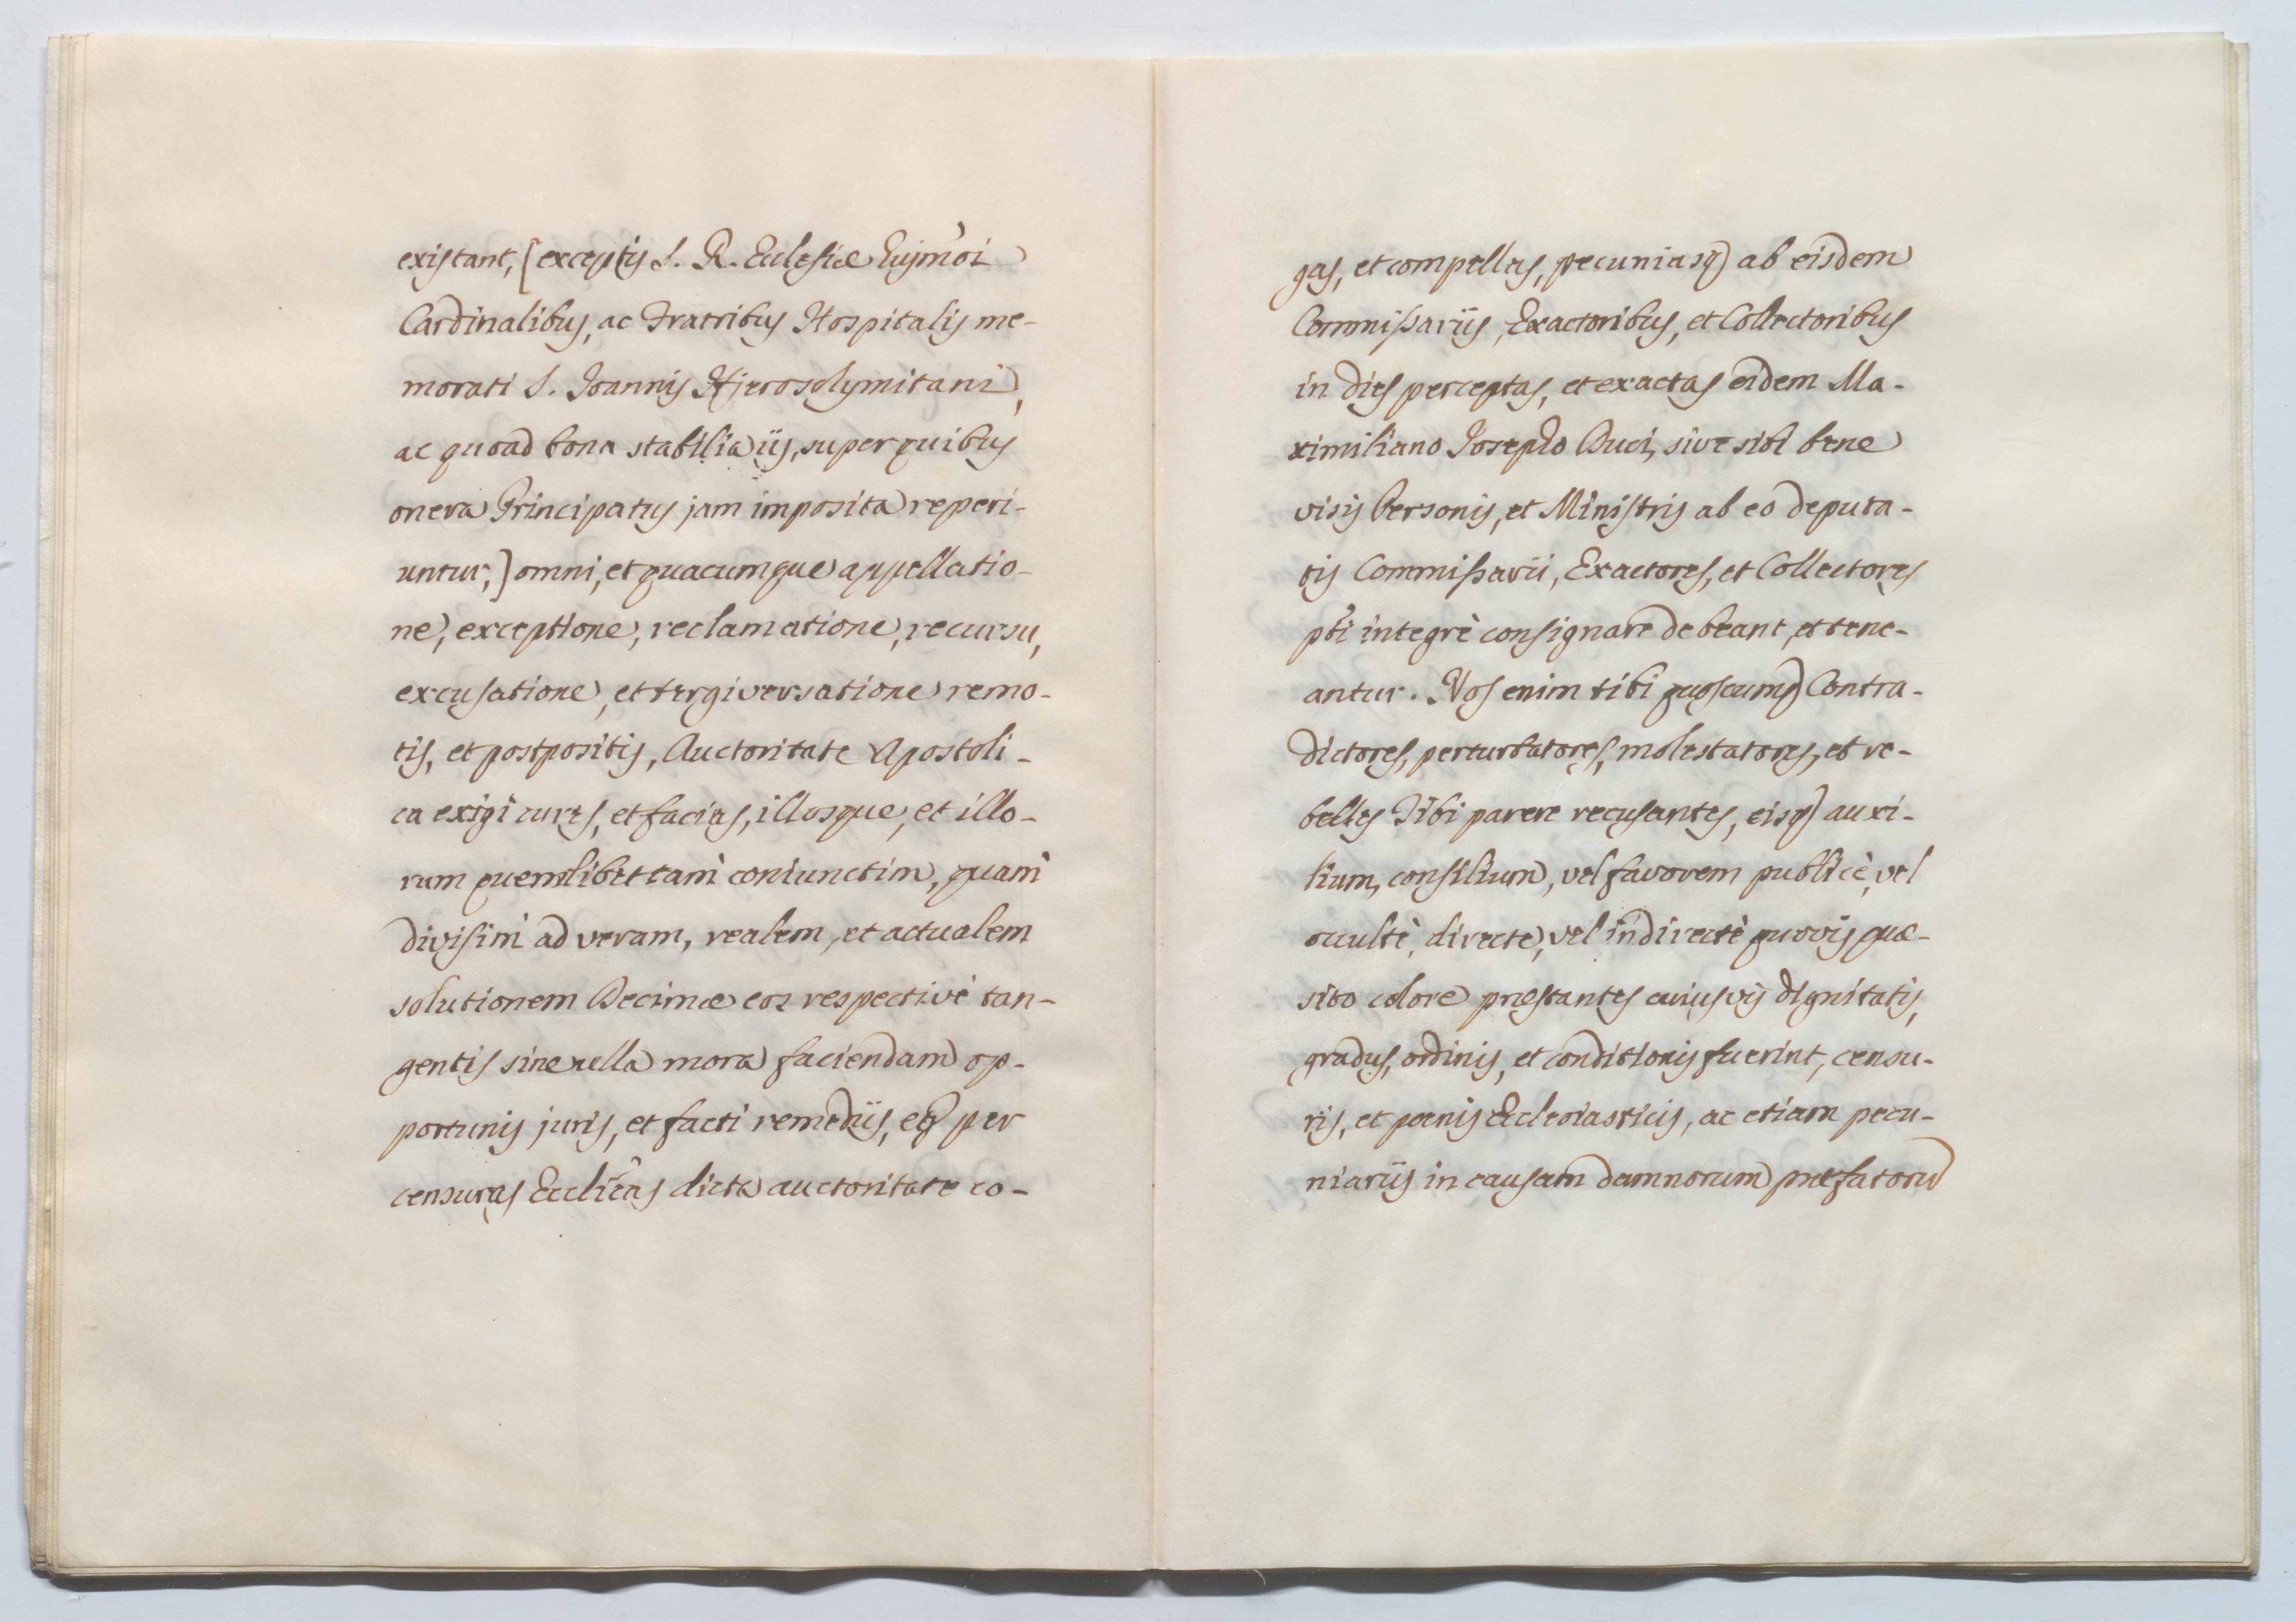 existant, [exceptis S. R. Ecclesiæ hujmõi
Cardinalibus, ac Fratribus Hospitalis me-
morati S. Joannis Hjerosolymitani,
ac quoad bona stabilia iis, super quibus
onera Principatus jam imposita reperi-
untur,] omni, et quacumque appellatio-
ne, exceptione, reclamatione, recursu,
excusatione, et tergiversatione remo-
tis, et postpositis, Auctoritate Apostoli-
ca exigi cures, et facias, illosque, et illo-
rum quemlibet tam̀ coniunctim, quam̀
divisim̀ ad veram, realem, et actualem
solutionem Decimæ eos respectivè tan-
gentis sine ulla mora faciendam op-
portunis juris, et facti remediis, eq3 per
censuras Ecclicãs dicta auctoritate co-
gas, et compellas, pecuniasq3 ab eisdem
Commissariis, Exactoribus, et Collectoribus
in dies perceptas, et exactas eidem Ma-
ximiliano Josepho Duci, sive sibi bene
visis Personis, et Ministris ab eo deputa-
tis Commissarii, Exactores, et Collectores
pt̃i integrè consignare debeant, et tene-
antur. Nos enim tibi quoscumq3 Contra-
dictores, perturbatores, molestatores, et re-
belles Tibi parere recusantes, eisq3 auxi-
lium, consilium, vel favorem publicè, vel
occultè, directe, vel indirectè quovis quæ-
sito colore præstantes cuiusvis dignitatis,
gradus, ordinis, et conditionis fuerint, censu-
ris, et pœnis Ecclesiasticis, ac etiam pecu-
niariis in causam damnorum præfatorũ